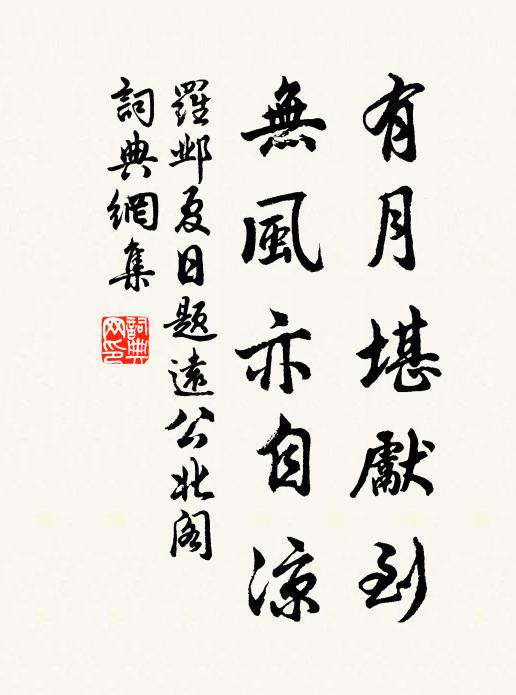 有月堪獻到
無風亦自涼
羅鄴夏日題遠公北閣
詞典網集
詞典
网印